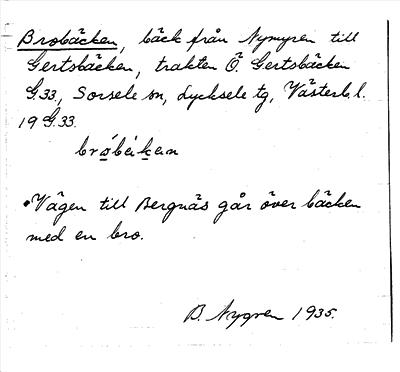 Brobäcken, bäck från Nymyren till
Gertsbäcken, trakten Ö. Gertsbäcken
G.33, Sorsele sn, Lycksele tg, Västerb. l.
19 G.33.
• Vägen till Bergnäs går över bäcken
med en bro.
B. Nygren 1935.